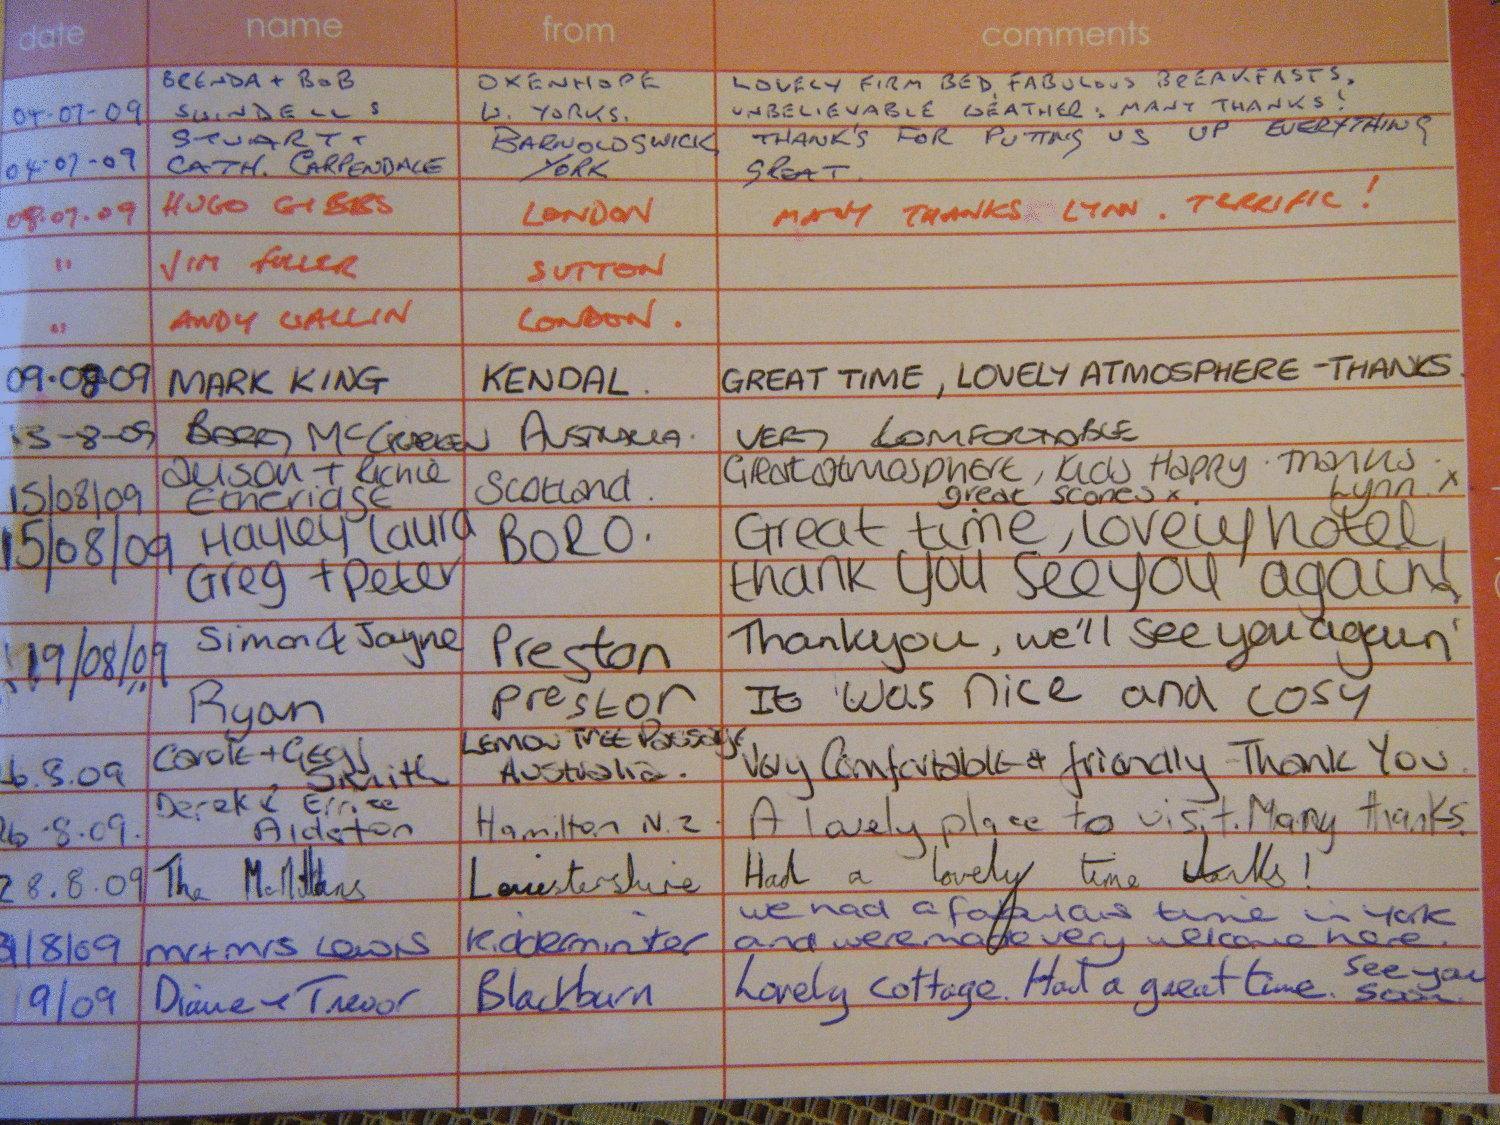 date name from comments
BRENDA + BOB OXENHOPE LOVELY FIRM BED, FABULOUS BREAKFASTS,
04-07-09 SWINDELLS W. YORKS. UNBELIEVABLE WEATHER. MANY THANKS!
STUART + BARNOLDSWICK, THANK'S FOR PUTTING US UP EVERYTHING
04-07-09 CATH. CARPENDALE YORK GREAT.
08.07.09 HUGO GIBBS LONDON MANY THANKS LYNN. TERRIFIC!
" JIM FULLER SUTTON
" ANDY WALLIN LONDON.
09.08.09 MARK KING KENDAL. GREAT TIME, LOVELY ATMOSPHERE - THANKS.
13-8-09 BARRY McCRACKEN AUSTRALIA. VERY COMFORTABLE
Alison + Richie Great atmosphere, kids Happy. Thanks
15/08/09 Etheridge Scotland. great scones x. Lynn. x
15/08/09 Hayley Laura BORO. Great time, lovely hotel,
Greg + Peter thank you see you again!
19/08/09 Simon & Jayne Preston Thankyou, we'll see you again'
Ryan Preston It was nice and cosy
Carole + Geoff LEMON TREE Passage
6.8.09 Smith Australia. Very Comfortable & friendly - Thank You.
Derek &
26.8.09. Hamilton N.Z. A lovely place to visit. Many thanks.
28.8.09 The McMillans Leicestershire Had a lovely time thanks!
we had a fabulous time in york
31/8/09 mr + mrs Lewis Kidderminster and were made very welcome here.
9/09 Diane & Trevor Blackburn Lovely cottage. Had a great time. See you
soon.